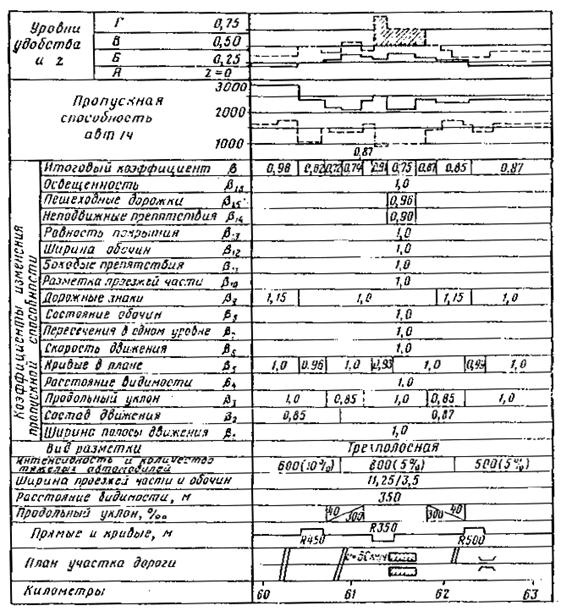 Уровни удобства и z
Г 0,75
В 0,50
Б 0,25
А z=0
Пропускная способность авт/ч
3000
2000
1000
0,87
Коэффициенты изменения пропускной способности
Итоговый коэффициент β 0,98 0,82 0,72 0,74 0,91 0,75 0,87 0,85 0,87
Освещенность 1,0
Пешеходные дорожки β15 0,96
Неподвижные препятствия β14 0,90
Ровность покрытия 1,0
Ширина обочин β12 1,0
Боковые препятствия 1,0
Разметка проезжей части β10 1,0
Дорожные знаки 1,15 1,0 1,15 1,0
Состояние обочин 1,0
Пересечения в одном уровне 1,0
Скорость движения β6 1,0
Кривые в плане β5 1,0 0,96 1,0 0,93 1,0 0,99 1,0
Расстояние видимости β4 1,0
Продольный уклон β3 1,0 0,85 1,0 0,85 1,0
Состав движения β2 0,85 0,87
Ширина полосы движения 1,0
Вид разметки Трехполосная
Интенсивность и количество тяжелых автомобилей 600(10%) 800(5%) 500(5%)
Ширина проезжей части и обочин 11,25/3,5
Расстояние видимости, м 350
Продольный уклон, ‰ 40 300 300 40
Прямые и кривые, м R450 R350 R500
План участка дороги
Километры 60 61 62 63